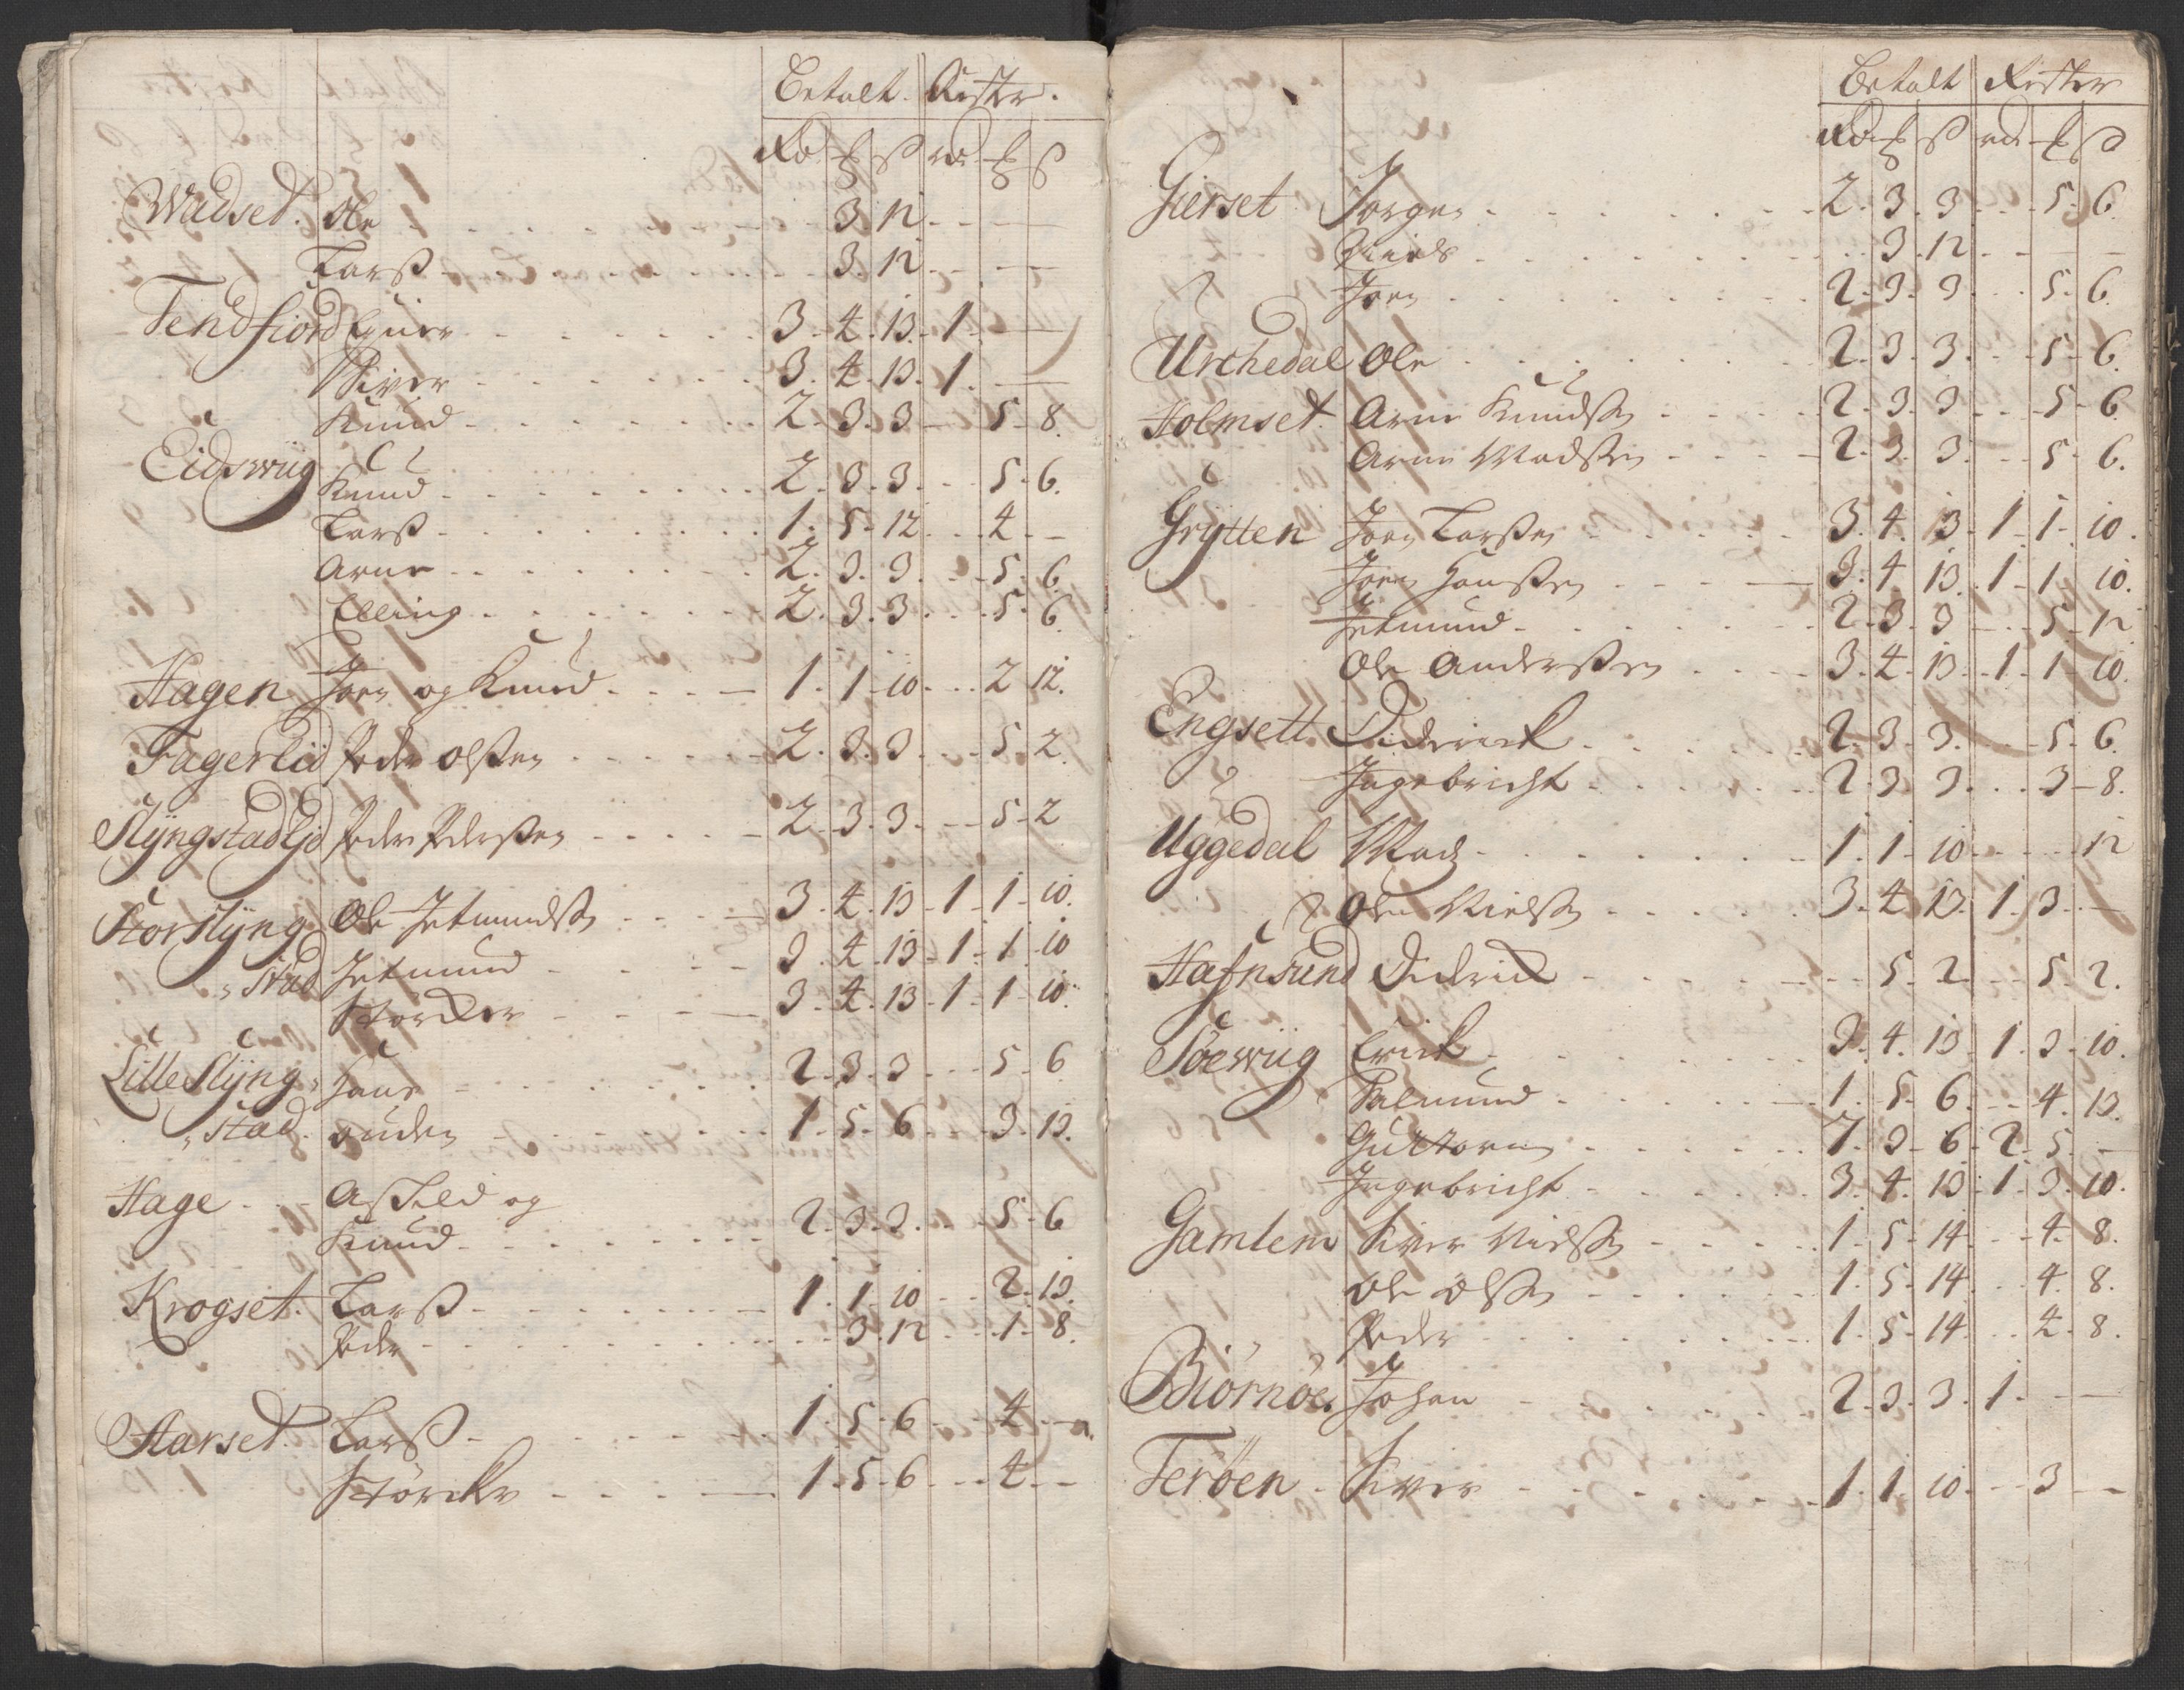 Betalt. Rester.
Rd ß rd ß
Wadset. Ole 3. 12
Larß 3. 12
Tendfiord Ejner 3. 4. 13. 1
Siver 3. 4. 13. 1
Knud 2. 3. 3 5. 8.
Eidswiig
Knud 2. 3. 3 5. 6.
Larß 1. 5. 12 4
Arne 2. 3. 3 5. 6
Elling 2. 3. 3 5. 6
Hagen Joen og Knud 1. 1. 10 2 12.
Fagerlid Peder Olßen 2. 3. 3 5. 2.
Slyngstadlid Peder Pederßen 2. 3. 3 5. 2
Storslyng Ole Jetmundß. 3. 4. 13. 1. 1. 10.
stad Jetmund 3. 4. 13. 1. 1. 10
Storcker 3. 4. 13. 1. 1. 10.
Lille Slyng Hans 2. 3. 3 5. 6
stad. Auden 1. 5. 6 3. 13.
Hage Aslild og
Knud 2. 3. 3 5. 6
Krogset. Larß 1. 1. 10 2. 13.
Peder 3. 12 1. 8.
Aarset. Larß 1. 5. 6 4
Storcker 1. 5. 6 4
Betalt Rester
Rd ß rd ß
Gierset Jørgen 2. 3. 3 5. 6.
Niels 3. 12
Joen 2. 3. 3 5. 6.
Urchedal Ole 2. 3. 3 5. 6.
Holmset. Arne Knudß. 2. 3. 3 5. 6.
Arne Madßen 2. 3. 3 5. 6.
Grytten Joen Larßen 3. 4. 13. 1. 1. 10.
Joen Hanßen 3. 4 13. 1. 1 10.
Jetmund 2. 3. 3 5. 12
Ole Anderßen 3. 4. 13. 1. 1 10.
Engsett Didrick 2. 3. 3. 5. 6.
Ingebricht 2. 3 3 3. 8.
Uggedal Mads 1. 1. 10 12
Ole Nielß. 3. 4 13. 1. 3.
Hafnsund Didrick 5. 2 5. 2.
Søewiig Erick 3. 4. 13. 1. 3. 10.
Salmund 1. 5. 6. 4. 13.
Guttorm 7. 3. 6. 2. 5.
Ingebricht 3. 4. 13. 1. 3. 10.
Gamlem Siver Nielß. 1. 5. 14. 4. 8.
Ole Olß. 1. 5. 14 4. 8.
Peder 1. 5. 14. 4. 8.
Biørnøe. Johan 2. 3. 3. 1.
Terøen Siver 1. 1. 10 3